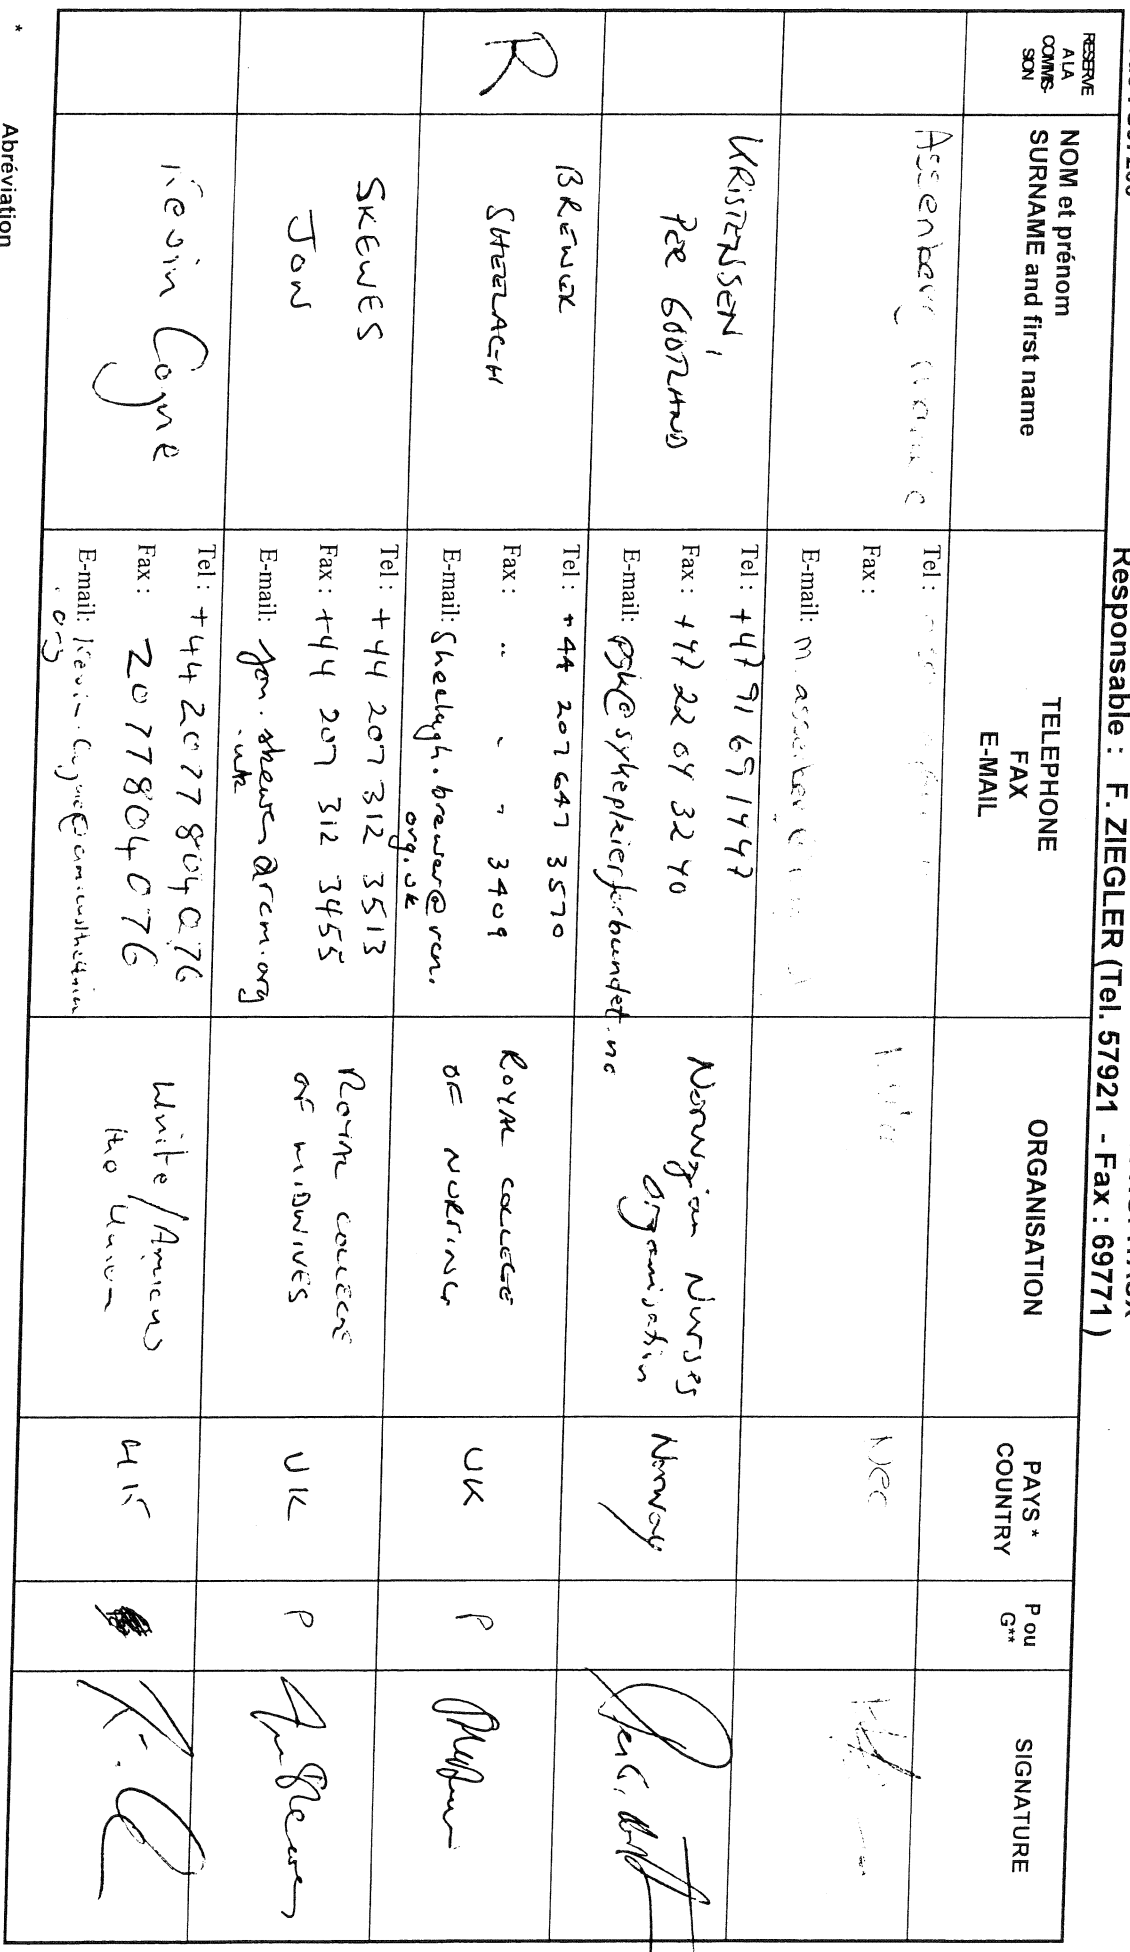 Responsable : F. ZIEGLER (Tel. 57921 - Fax : 69771 )
RESERVE
A LA
COMMIS-
SION
NOM et prénom
SURNAME and first name
TELEPHONE
FAX
E-MAIL
ORGANISATION
PAYS *
COUNTRY
P ou
G**
SIGNATURE
Tel :
Fax :
E-mail:
KRISTENSEN,
PER GODTLAND
Tel : +47 91 69 1447
Fax : +47 22 04 32 40
E-mail: pgk@sykepleierforbundet.no
Norwegian Nurses
Organisation
Norway
R
BREWER
SHEELAGH
Tel : +44 207 647 3570
Fax : " " " 3409
E-mail: Sheelagh.brewer@rcn.
org.uk
ROYAL COLLEGE
OF NURSING
UK
P
SKEWES
JON
Tel : +44 207 312 3513
Fax : +44 207 312 3455
E-mail: jon.skewes@rcm.org
.uk
ROYAL COLLEGE
OF MIDWIVES
UK
P
Kevin Coyne
Tel : +44 2077804076
Fax : 2077804076
E-mail: Kevin.Coyne@amicustheunion
.org
/Amicus
the Union
UK
*
Abréviation